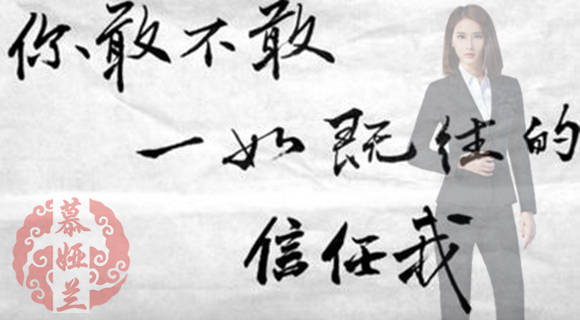 你敢不敢
一如既往的
信任我
慕娅兰